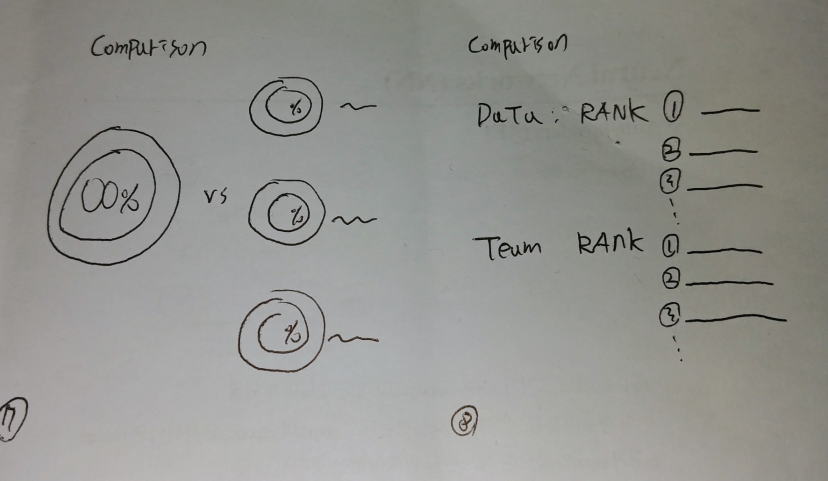 Comparison
00%
vs
%
%
%
7
Comparison
Data: RANK ①
②
③
Team RANK ①
②
③
⑧